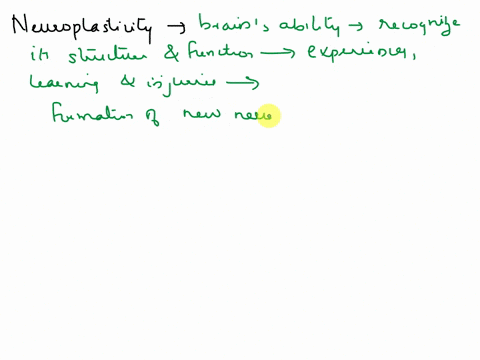 Neuroplasticity → brain's ability → recognize
its structure & function → experiences,
learning & injuries →
Formation of new neu